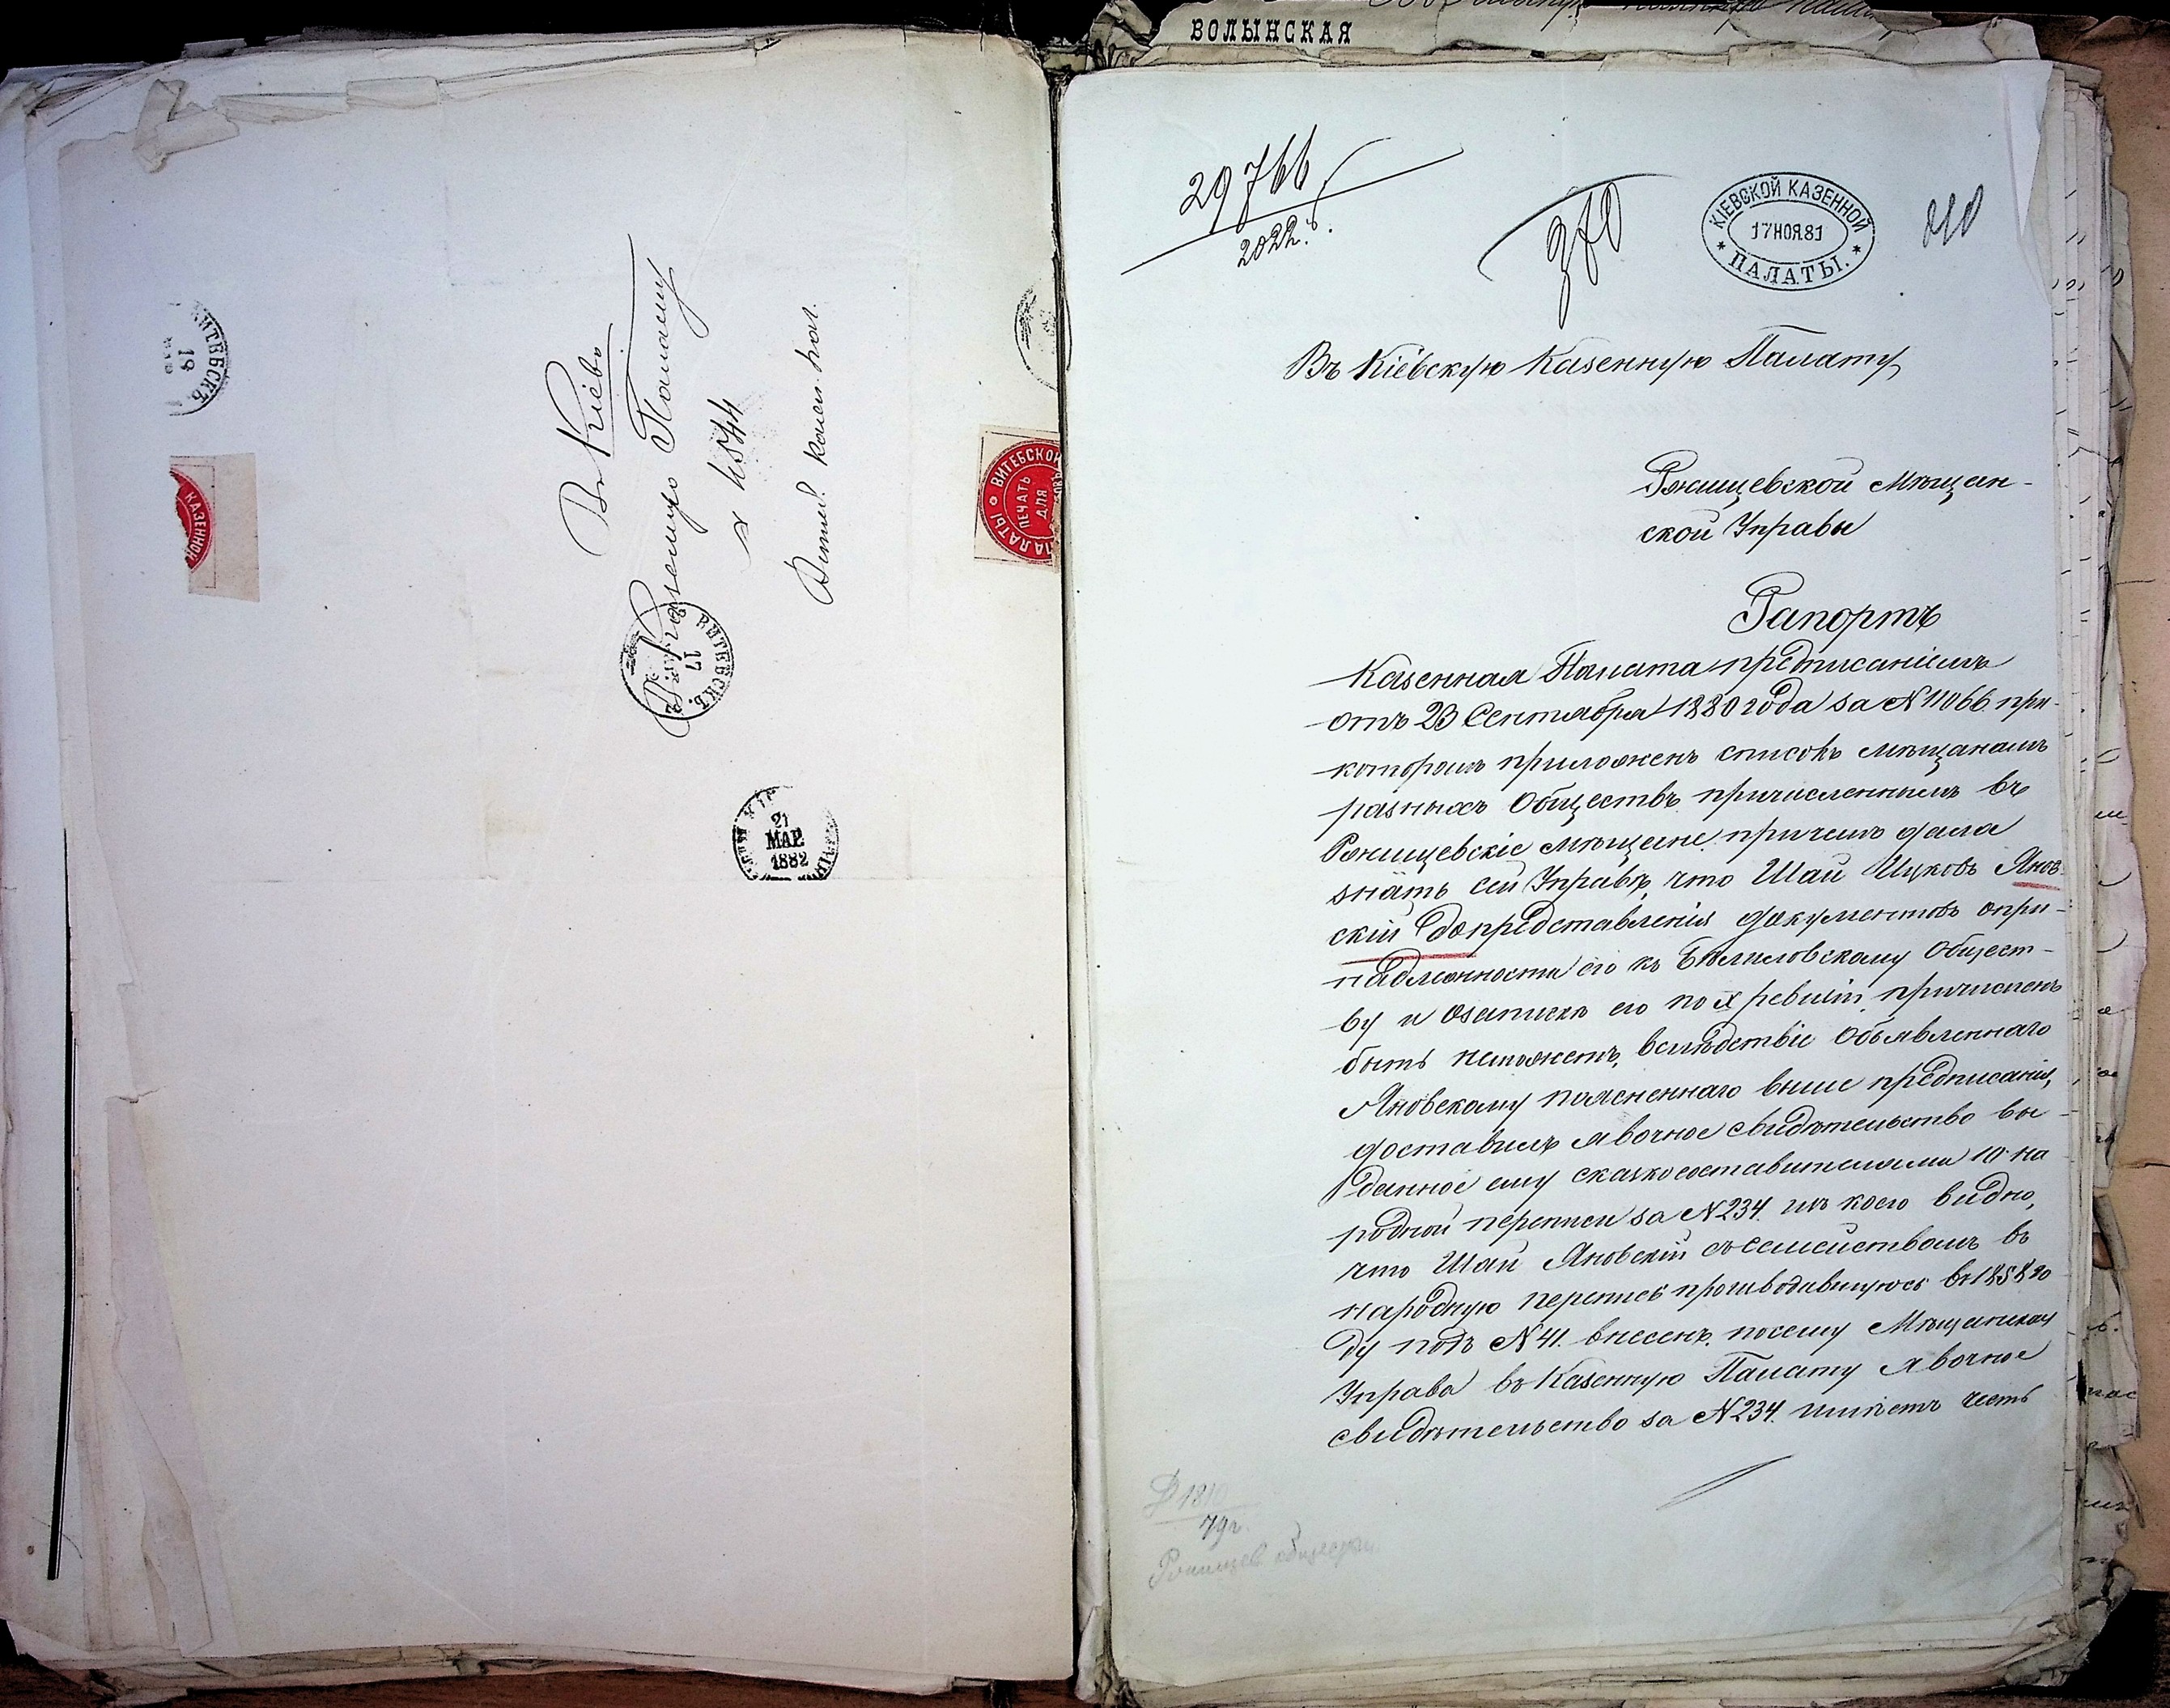 ВОЛЫНСКАЯ
ВИТЕБСКЪ
19
КАЗЕННОЙ
Въ Кіевъ
Казенную Палату
№ 4544
Витеб. казен. пал.
ВИТЕБСКЪ.
17
21
МАР.
1882
ВИТЕБСКОЙ
ПАЛАТЫ
ПЕЧАТЬ
ДЛЯ
29766
2022.
370
КІЕВСКОЙ КАЗЕННОЙ
17 НОЯ. 81
ПАЛАТЫ.
Въ Кіевскую Казенную Палату
Ржищевской Мѣщан-
ской Управы
Рапортъ
Казенная Палата предписаніемъ
отъ 23 Сентября 1880 года за № 11066. при
которомъ приложенъ списокъ мѣщанамъ
разныхъ Обществъ причисленнымъ въ
Ржищевскіе мѣщане. причемъ дала
знать сей Управѣ, что Шай Ицковъ Янов-
скій до представленія документовъ о при-
надлежности его къ Бѣлиловскому Общест-
ву и о запискѣ его по X ревизіи, причисленъ
быть неможетъ, вслѣдствіе Объявленнаго
Яновскому поясненнаго выше предписанія,
доставилъ явочное свидѣтельство вы-
данное ему сказкосоставителями 10 на
родной переписи за № 234. изъ коего видно,
что Шай Яновскій съ семействомъ въ
народную перепись производившуюсь въ 1858 го
ду подъ № 41. внесенъ. посему Мѣщанская
Управа въ Казенную Палату явочное
свидѣтельство за № 234. имѣетъ честь
79г.